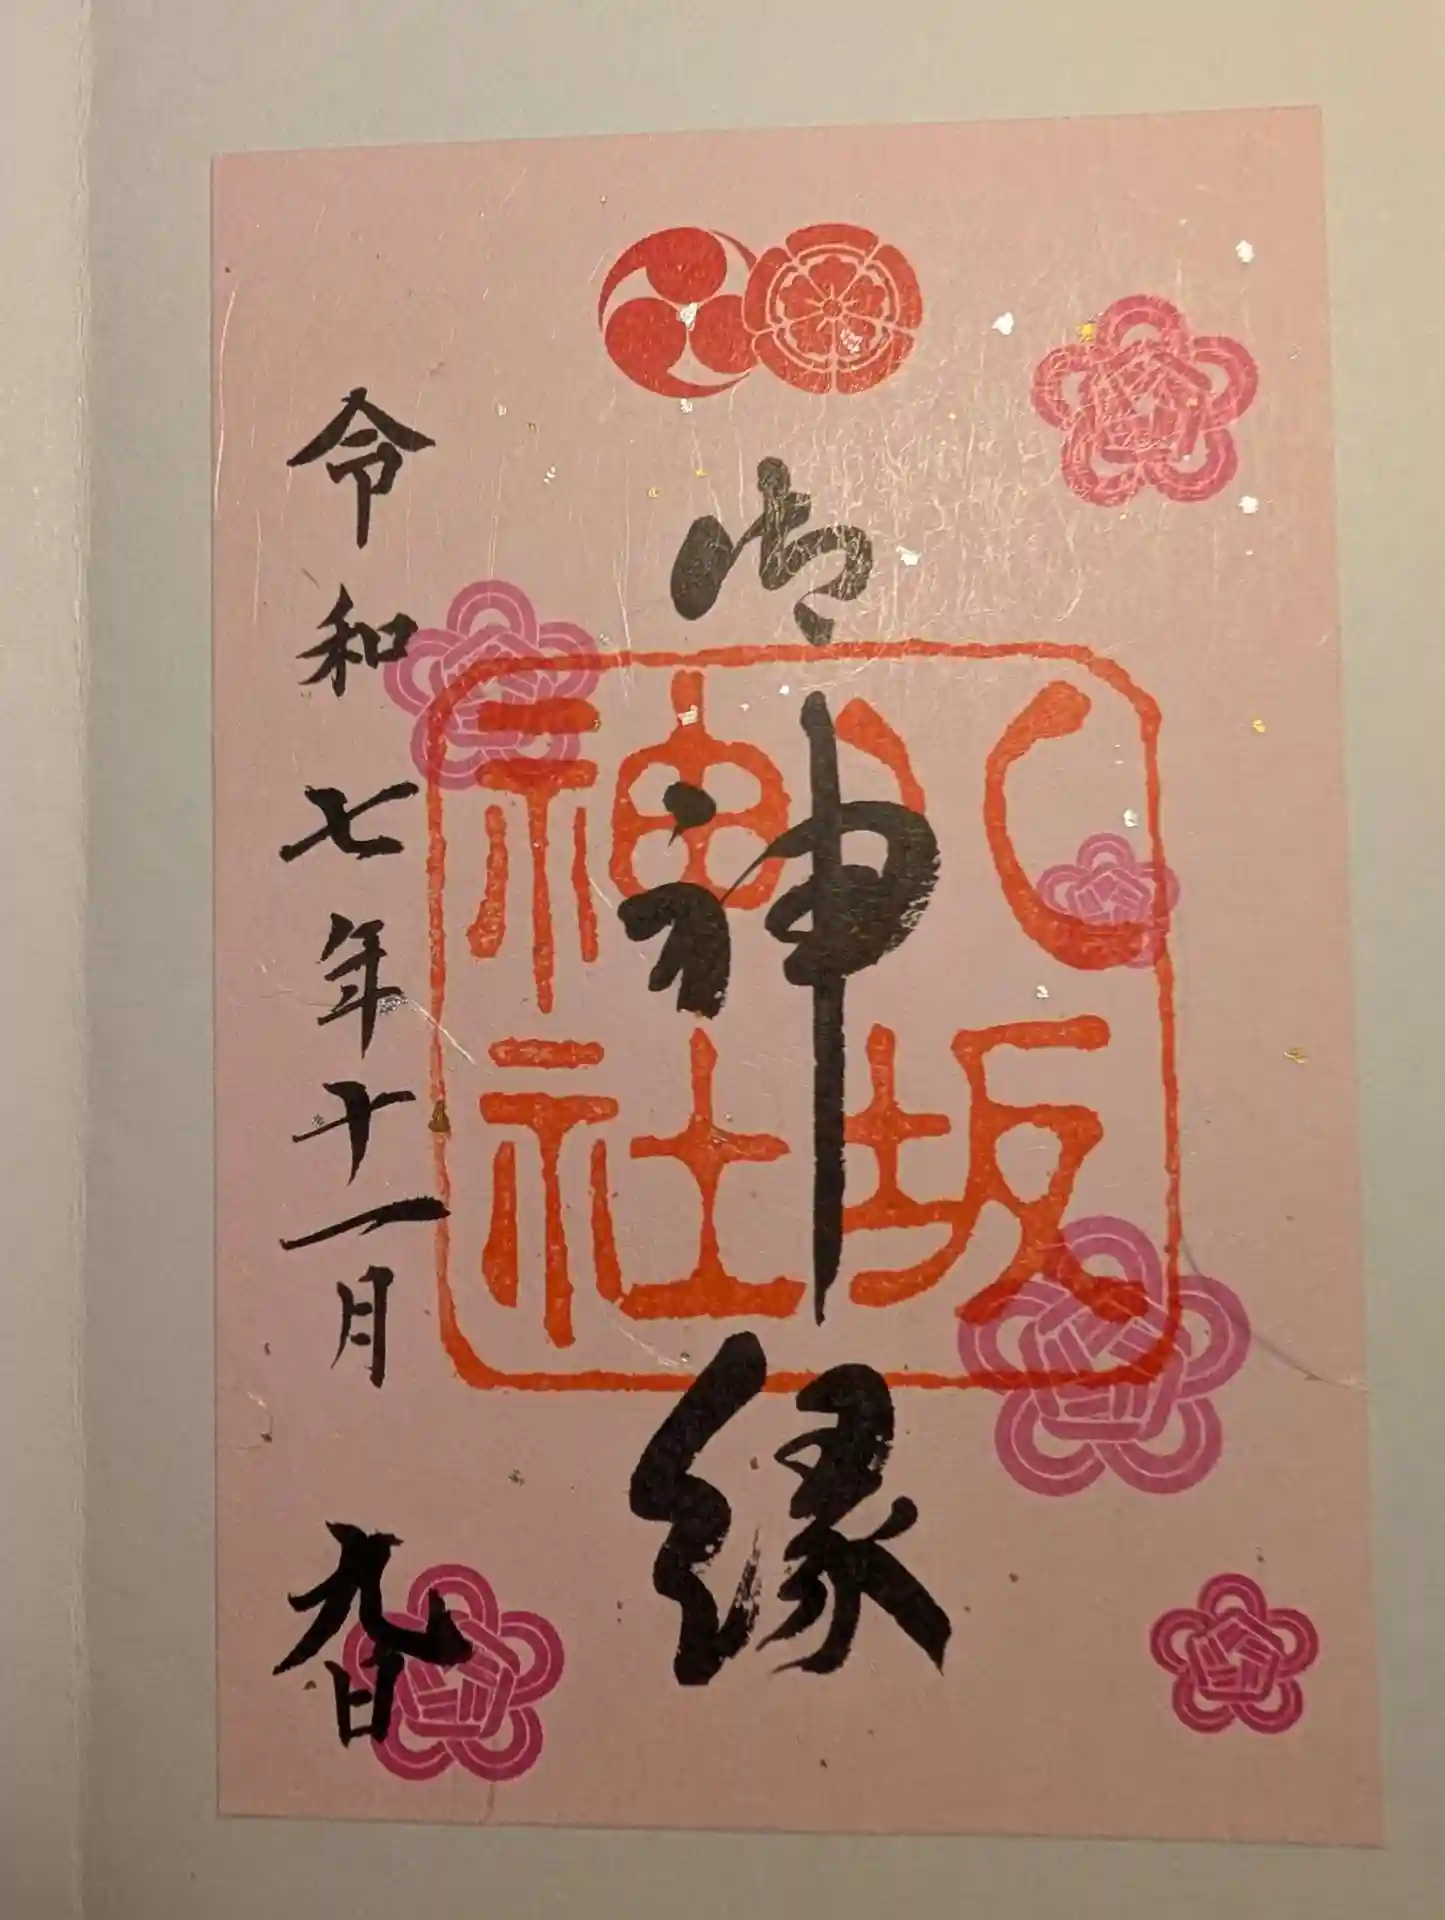 御神縁
八坂神社
令和七年十一月九日